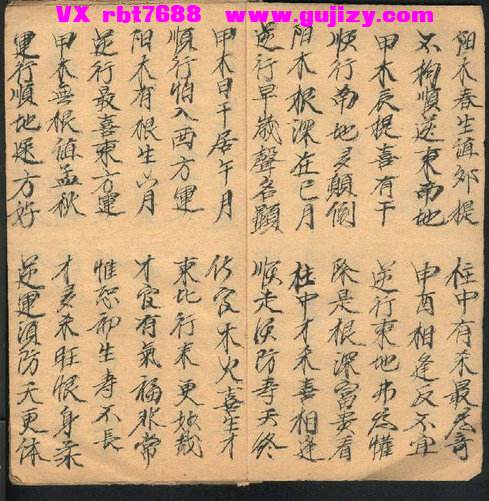 VX rbt7688 www.gujizy.com
阳木春生值卯提 柱中有杀最为奇
不拘順逆東南地 申酉相逢反不宜
甲木辰提喜有干 逆行東地弗为懼
順行南地灵顛倒 除是根深富贵看
阳木根深在巳月 柱中才杀喜相逢
逆行早歲聲名顯 順走须防寿夭终
甲木日干居午月 伤官木火喜生才
順行怕入酉方運 東北行来更妙哉
阳木有根生六月 才官有氣福非常
逆行最喜東方運 惟恐卯生寿不長
甲木無根值孟秋 才灵杀旺恨身柔
運行順地方好 逆運须防夭更体